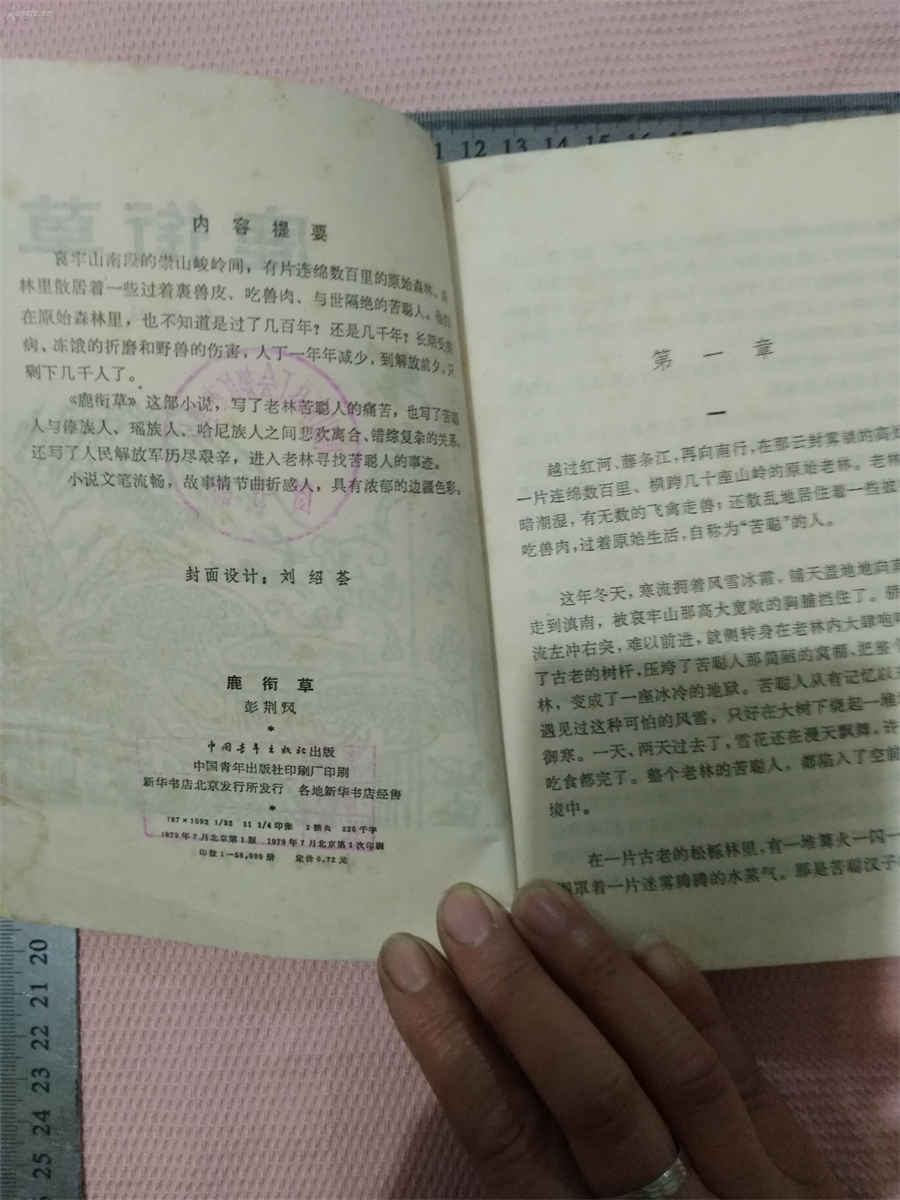 内容提要
哀牢山南段的崇山峻岭间，有片连绵数百里的原始森林。
林里散居着一些过着裹兽皮、吃兽肉、与世隔绝的苦聪人。
在原始森林里，也不知道是过了几百年？还是几千年？长期受
病、冻饿的折磨和野兽的伤害，人丁一年年减少，到解放前夕，只
剩下几千人了。
《鹿衔草》这部小说，写了老林苦聪人的痛苦，也写了苦聪
人与傣族人、瑶族人、哈尼族人之间悲欢离合、错综复杂的关系，
还写了人民解放军历尽艰辛，进入老林寻找苦聪人的事迹。
小说文笔流畅，故事情节曲折感人，具有浓郁的边疆色彩。
封面设计：刘绍荟
鹿衔草
彭荆风
*
中国青年出版社出版
中国青年出版社印刷厂印刷
新华书店北京发行所发行 各地新华书店经售
*
787×1092 1/32 11 1/4印张 2插页 226千字
1979年7月北京第1版 1979年7月北京第1次印刷
印数1—50,000册 定价0.72元
第一章
一
越过红河、藤条江，再向南行，在那云封雾锁的高
一片连绵数百里、横跨几十座山岭的原始老林。老林
暗潮湿，有无数的飞禽走兽；还散乱地居住着一些披
吃兽肉，过着原始生活，自称为“苦聪”的人。
这年冬天，寒流拥着风雪冰霜，铺天盖地地向
走到滇南，被哀牢山那高大宽敞的胸脯挡住了。骄
流左冲右突，难以前进，就侧转身在老林内大肆咆哮
了古老的树杆，压垮了苦聪人那简陋的窝棚，把整个
林，变成了一座冰冷的地狱。苦聪人从有记忆以
遇见过这种可怕的风雪，只好在大树下烧起一堆
御寒。一天、两天过去了，雪花还在漫天飘舞。许
吃食都完了。整个老林的苦聪人，都陷入了空前
境中。
在一片古老的松栎林里，有一堆篝火一闪一
罩着一片迷雾腾腾的水蒸气。那是苦聪汉子
12 13 14 15 16 17
20
21
22
23
24
25